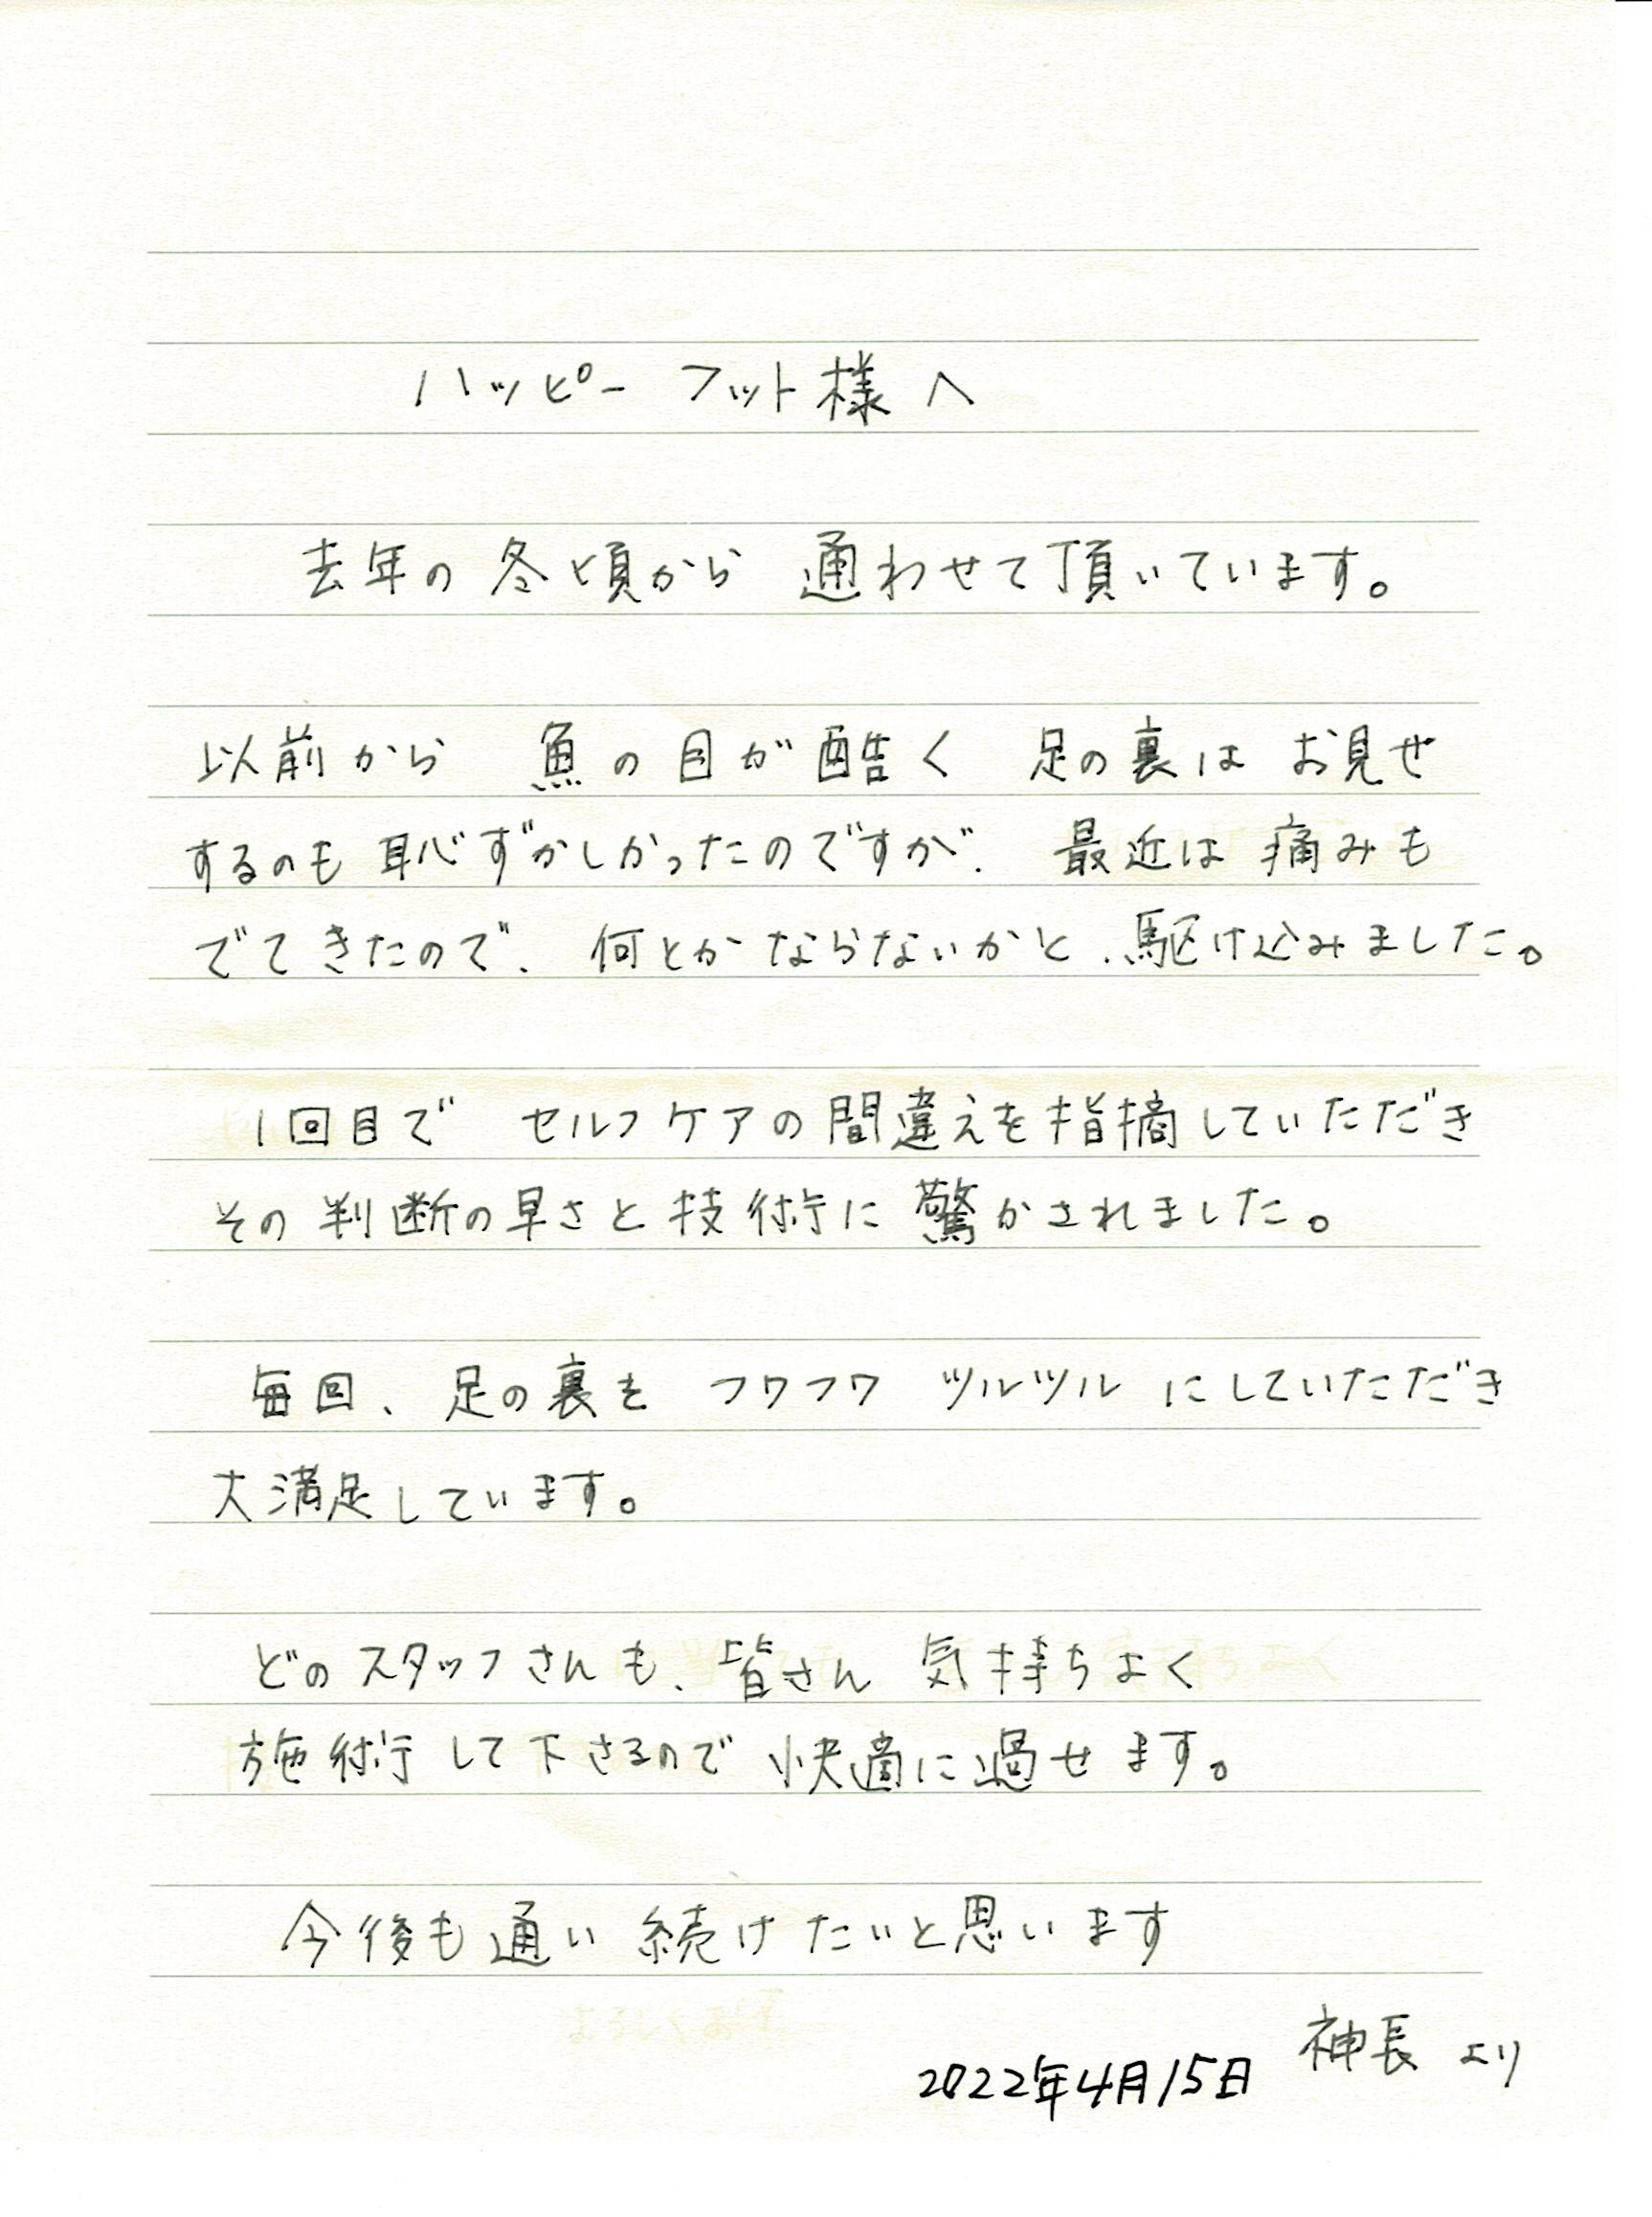 ハッピーフット様へ
去年の冬頃から 通わせて頂いています。
以前から 魚の目が酷く 足の裏は お見せ
するのも恥ずかしかったのですが、 最近は痛みも
でてきたので、 何とかならないかと、駆け込みました。
1回目で セルフケアの間違えを指摘していただき
その判断の早さと技術に驚かされました。
毎回、足の裏を フワフワ ツルツル にしていただき
大満足しています。
どのスタッフさんも、皆さん 気持ちよく
施術して下さるので 快適に過せます。
今後も通い続けたいと思います
神長 より
2022年4月15日